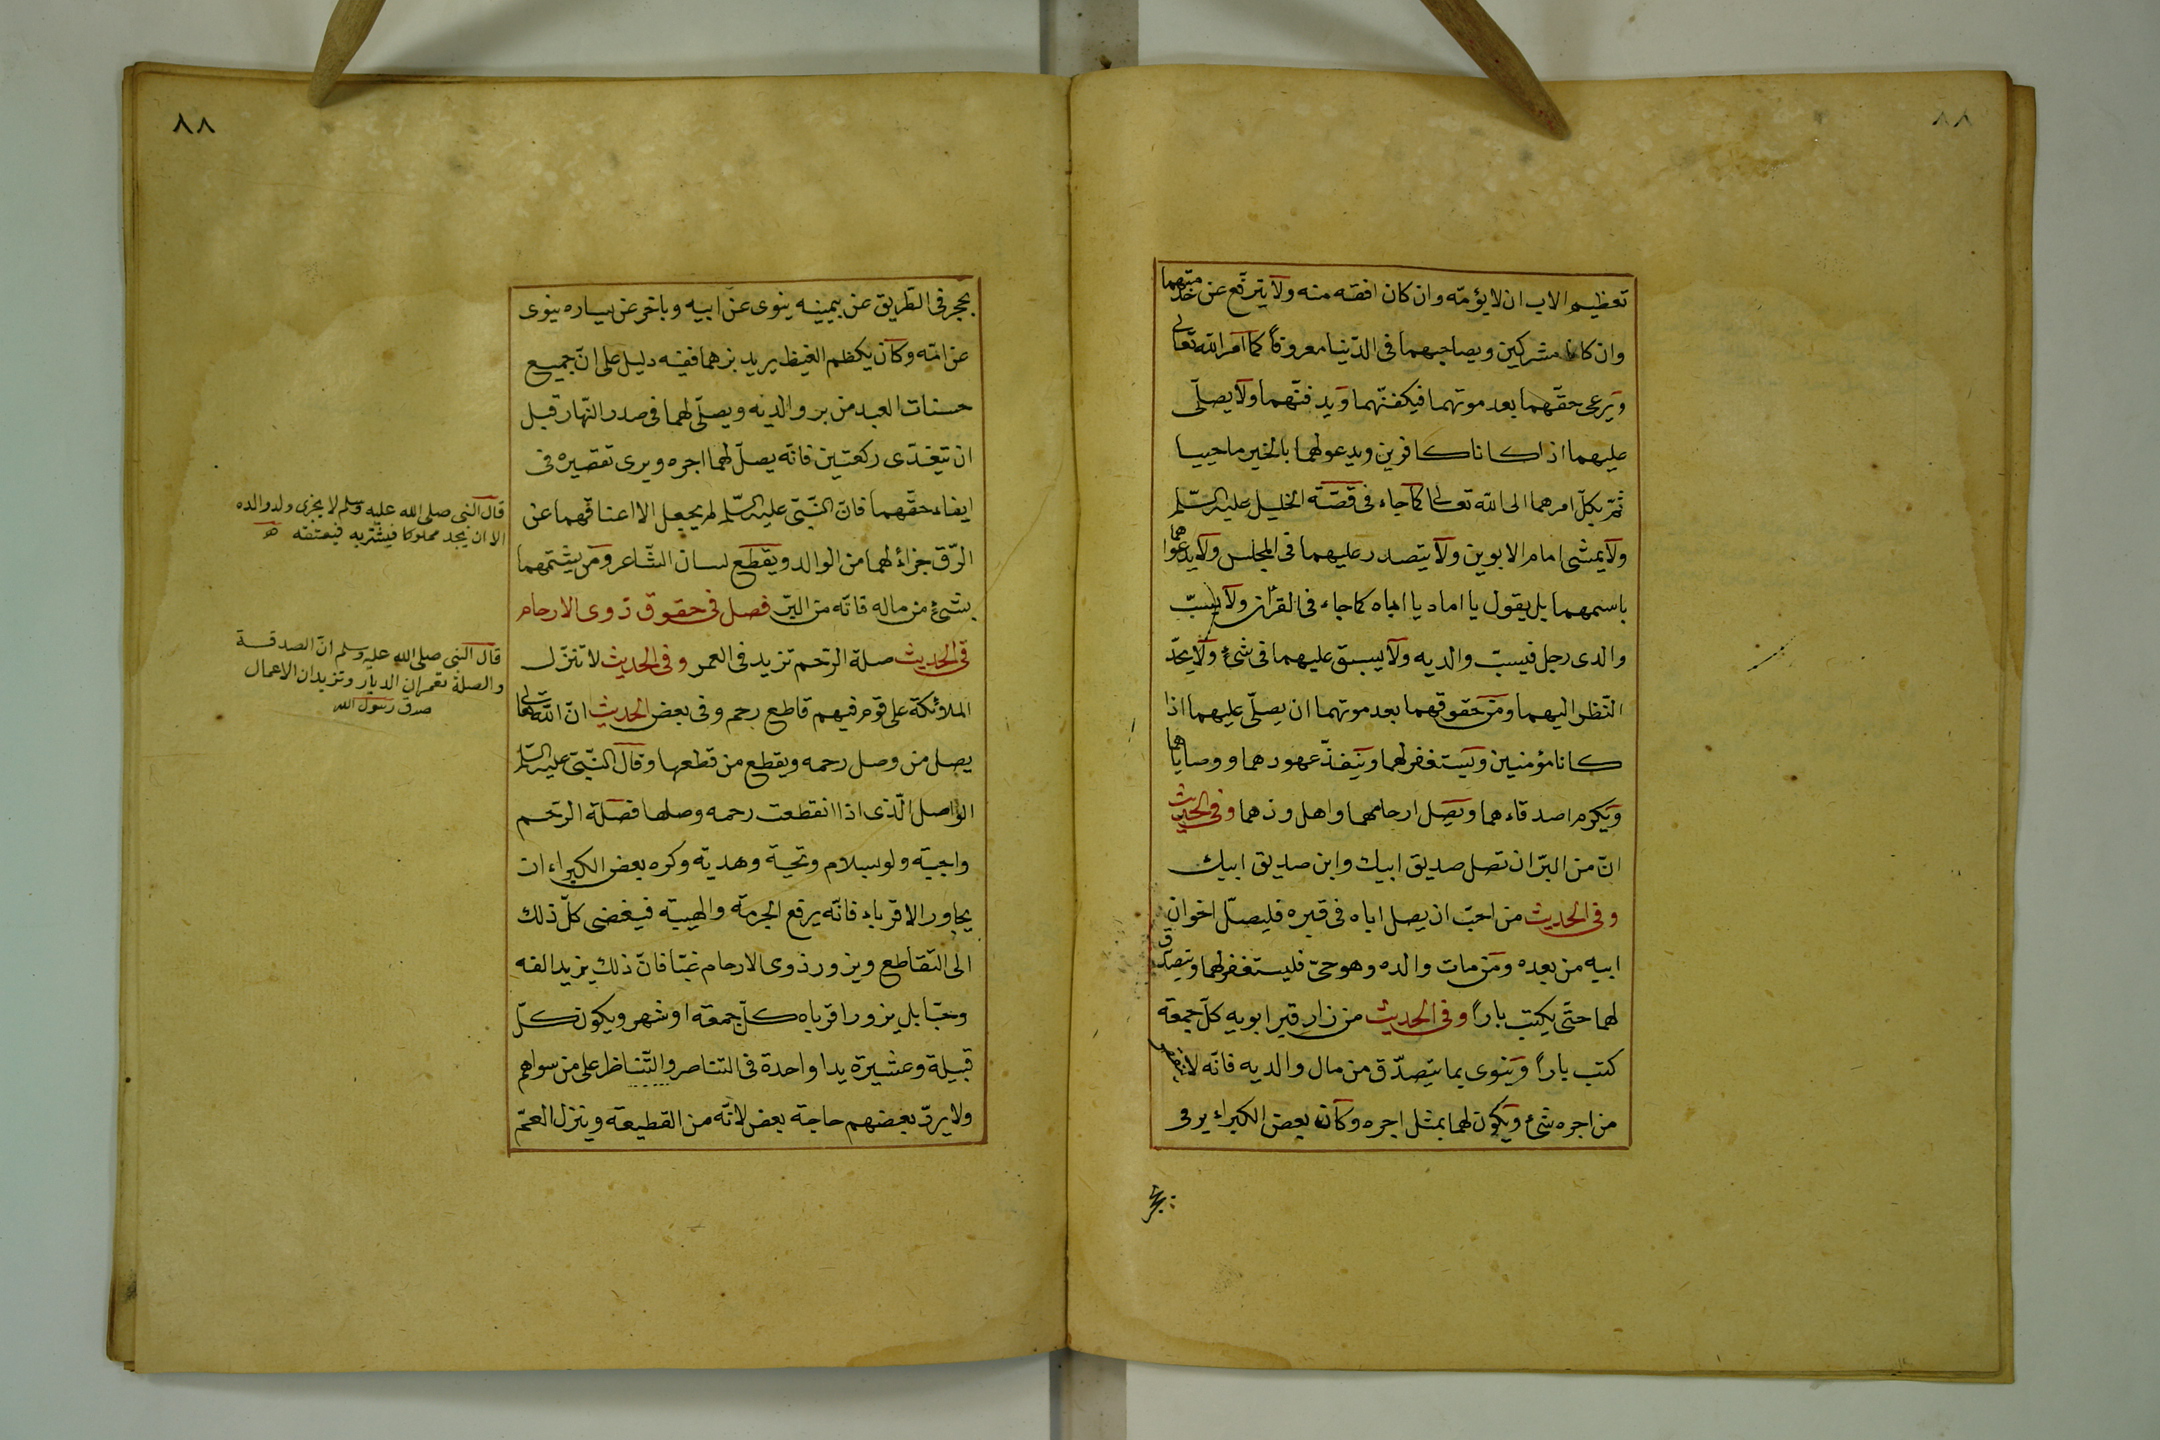 تعظيم الاب ان لا يؤمّه وان كان افقه منه ولا يترفّع عن خدمتهما
وان كانا مشركين ويصاحبهما فى الدّنيا معروفاً كما امر الله تعالى
ويرعى حقّهما بعد موتهما فيكفنّهما ويدفنّهما ولا يصلّى
عليهما اذا كانا كافرين ويدعو لهما بالخير ما حييا
ثمّ يكلّ امرهما الى الله تعالى كما جاء فى قصّة الخليل عليه السّلم
ولا يمشى امام الابوين ولا يتصدر عليهما فى المجلس ولا يدعوهما
باسمهما بل يقول يا اماه يا اباه كما جاء فى القرآن ولا يسبّ
والدى رجل فيسبّ والديه ولا يسبق عليهما فى شئ ولا يحدّ
النّظر اليهما ومن حقوقهما بعد موتهما ان يصلّى عليهما اذا
كانا مؤمنين ويستغفر لهما وينفذ عهودهما ووصاياهما
ويكرم اصدقاءهما ويصل ارحامهما واهل ودهما وفى الحديث
انّ من البرّ ان تصل صديق ابيك وابن صديق ابيك
وفى الحديث من احبّ ان يصل اباه فى قبره فليصلّ اخوان
ابيه من بعده ومن مات والده وهو حىّ فليستغفر لهما ويتصدق
لهما حتى يكتب باراً وفى الحديث من زار قبر ابويه كلّ جمعة
كتب باراً وينوى بما يتصدّق من مال والديه فانّه لا ينقص
من اجره شئ ويكون لهما بمثل اجره وكان بعض الكبراء يرمى
بحجر
٨٨
بحجر فى الطّريق عن يمينه ينوى عن ابيه وباخر عن يساره ينوى
عن امّه وكان يكظم الغيظ يريد برّهما ففيه دليل على انّ جميع
حسنات العبد من بر والديه ويصلّى لهما فى صدر النّهار قبل
ان يتغدّى ركعتين فانّه يصلّ لهما اجره ويرى تقصيره فى
ايفاء حقّهما فانّ النّبىّ عليه السّلم لم يجعل الا اعتاقهما عن
الرّق جزاءً لهما من الوالد ويقطع لسان الشّاعر ومن يشتمهما
بشئ من ماله فانّه من البرّ فصل فى حقوق ذوى الارحام
فى الحديث صلة الرّحم تزيد فى العمر وفى الحديث لا تنزّل
الملائكة على قوم فيهم قاطع رحم وفى بعض الحديث انّ الله تعالى
يصل من وصل رحمه ويقطع من قطعها وقال النّبىّ عليه السّلم
الواصل الّذى اذا انقطعت رحمه وصلها فصلة الرّحم
واجبة ولو بسلام وتحية وهديّه وكره بعض الكبراء ان
يجاور الاقرباء فانّه يرفع الحرمة والهيبة فيفضى كلّ ذلك
الى التّقاطع ويزور ذوى الارحام غبّا فانّ ذلك يزيد الفه
وحبّا بل يزور اقرباه كلّ جمعة او شهر ويكون كلّ
قبيلة وعشيرة يدا واحدة فى التناصر والتّناظر على من سواهم
ولا يردّ بعضهم حاجة بعض لانّه من القطيعة وينزل العمّ
قال النبى صلى الله عليه وسلم لا يجزى ولد والده
الا ان يجد مملوكا فيشتريه فيعتقه
قال النبى صلى الله عليه وسلم انّ الصدقة
والصلة تعمران الديار وتزيدان الاعمال
صدق رسول الله